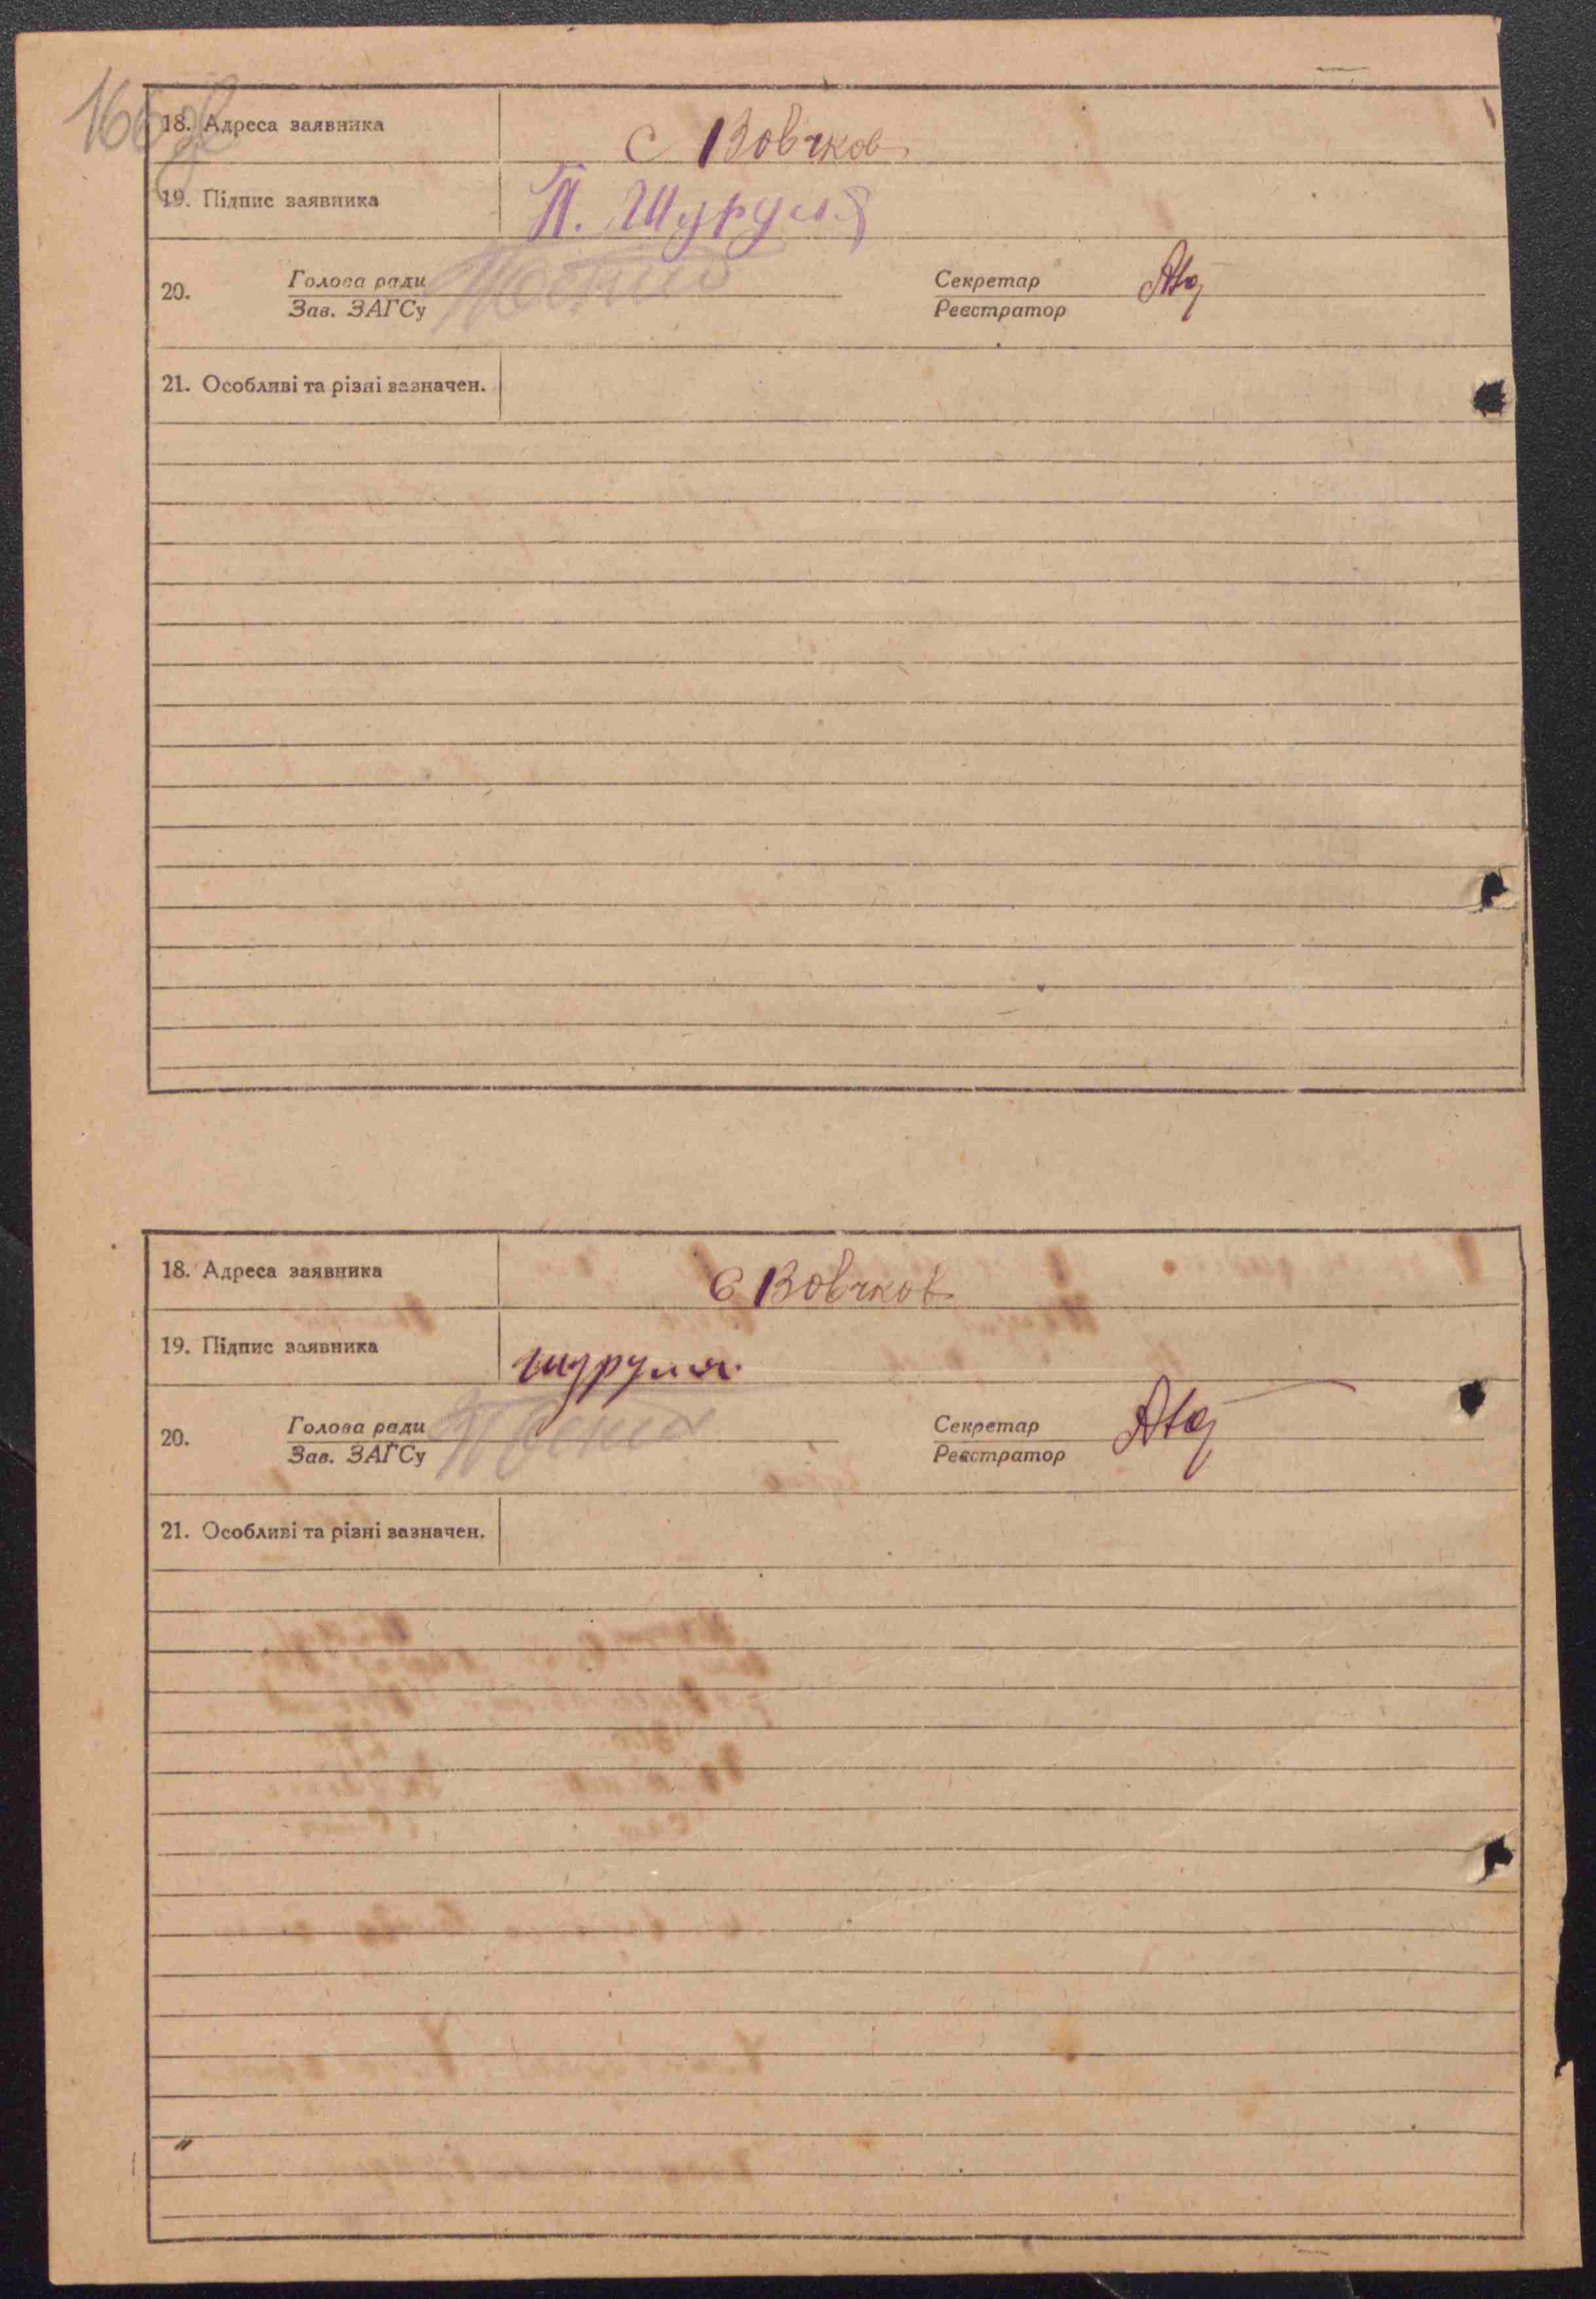 18. Адреса заявника с Вовчков
19. Підпис заявника П. Шуруля
20. Голова ради Секретар
Зав. ЗАГСу Реєстратор
21. Особливі та різні зазначен.
18. Адреса заявника с Вовчков
19. Підпис заявника шуруля.
20. Голова ради Секретар
Зав. ЗАГСу Реєстратор
21. Особливі та різні зазначен.